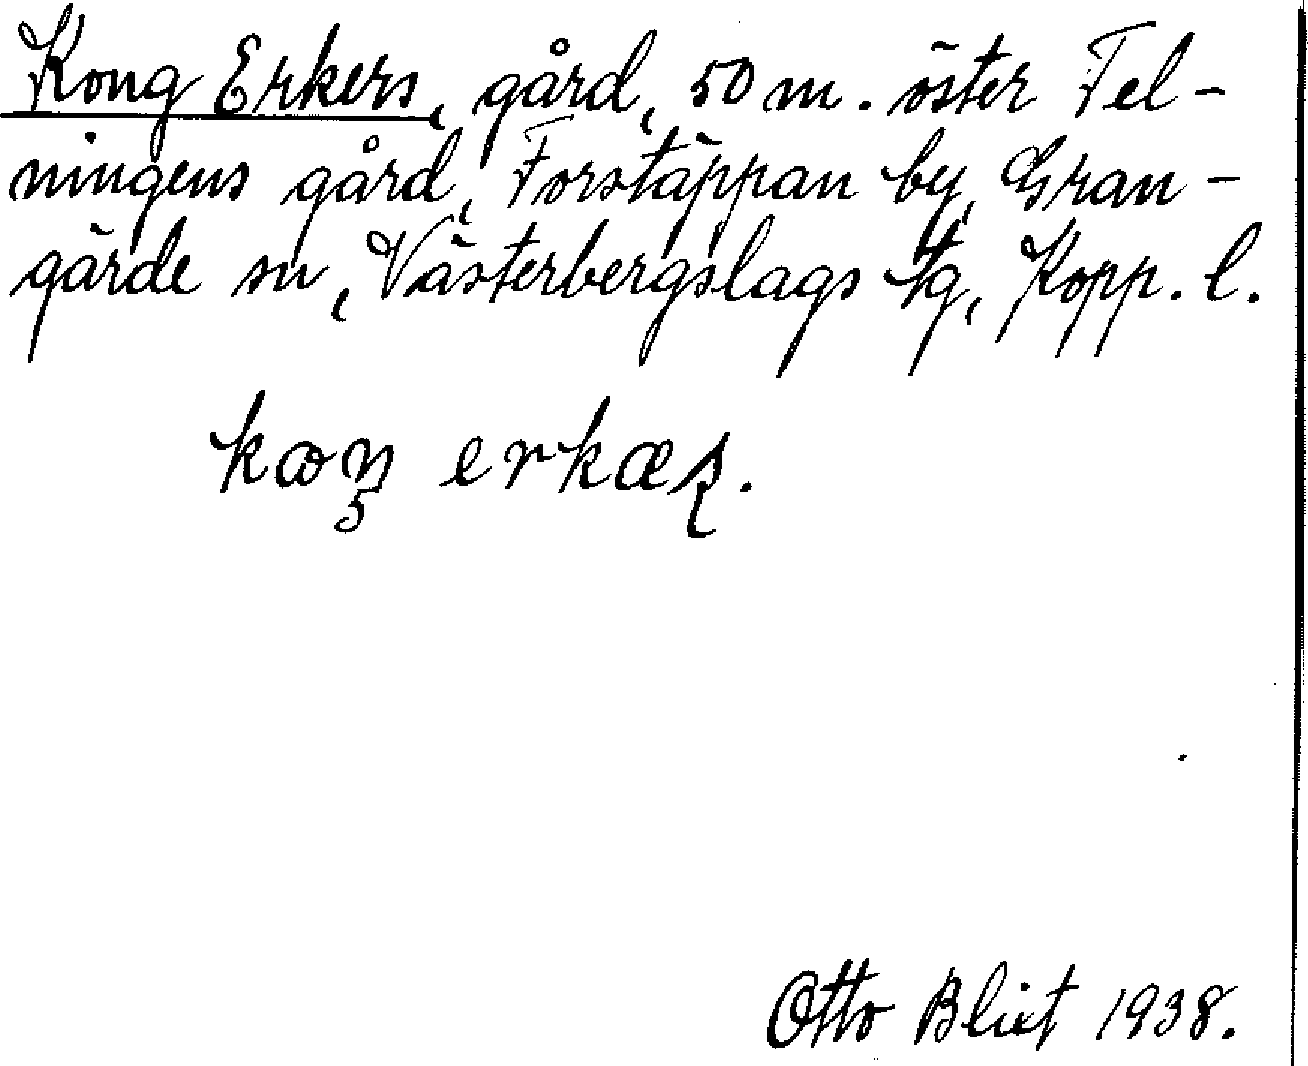 Kong Erkers, gård, 50 m. öster Fel-
ningens gård, Forstäppan by, Gran-
gärde sn, Västerbergslags tg, Kopp. l.
erkæʂ.
Otto Blixt 1938.